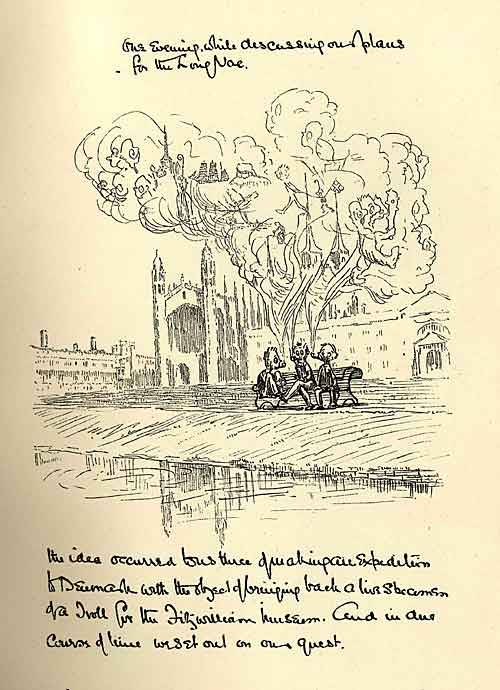 One Evening, while discussing our plans
for the Long Vac.
the idea occurred to us three of making an Expedition
to Denmark with the object of bringing back a live specimen
of a Troll for the Fitzwilliam Museum. And in due
course of time we set out on our quest.